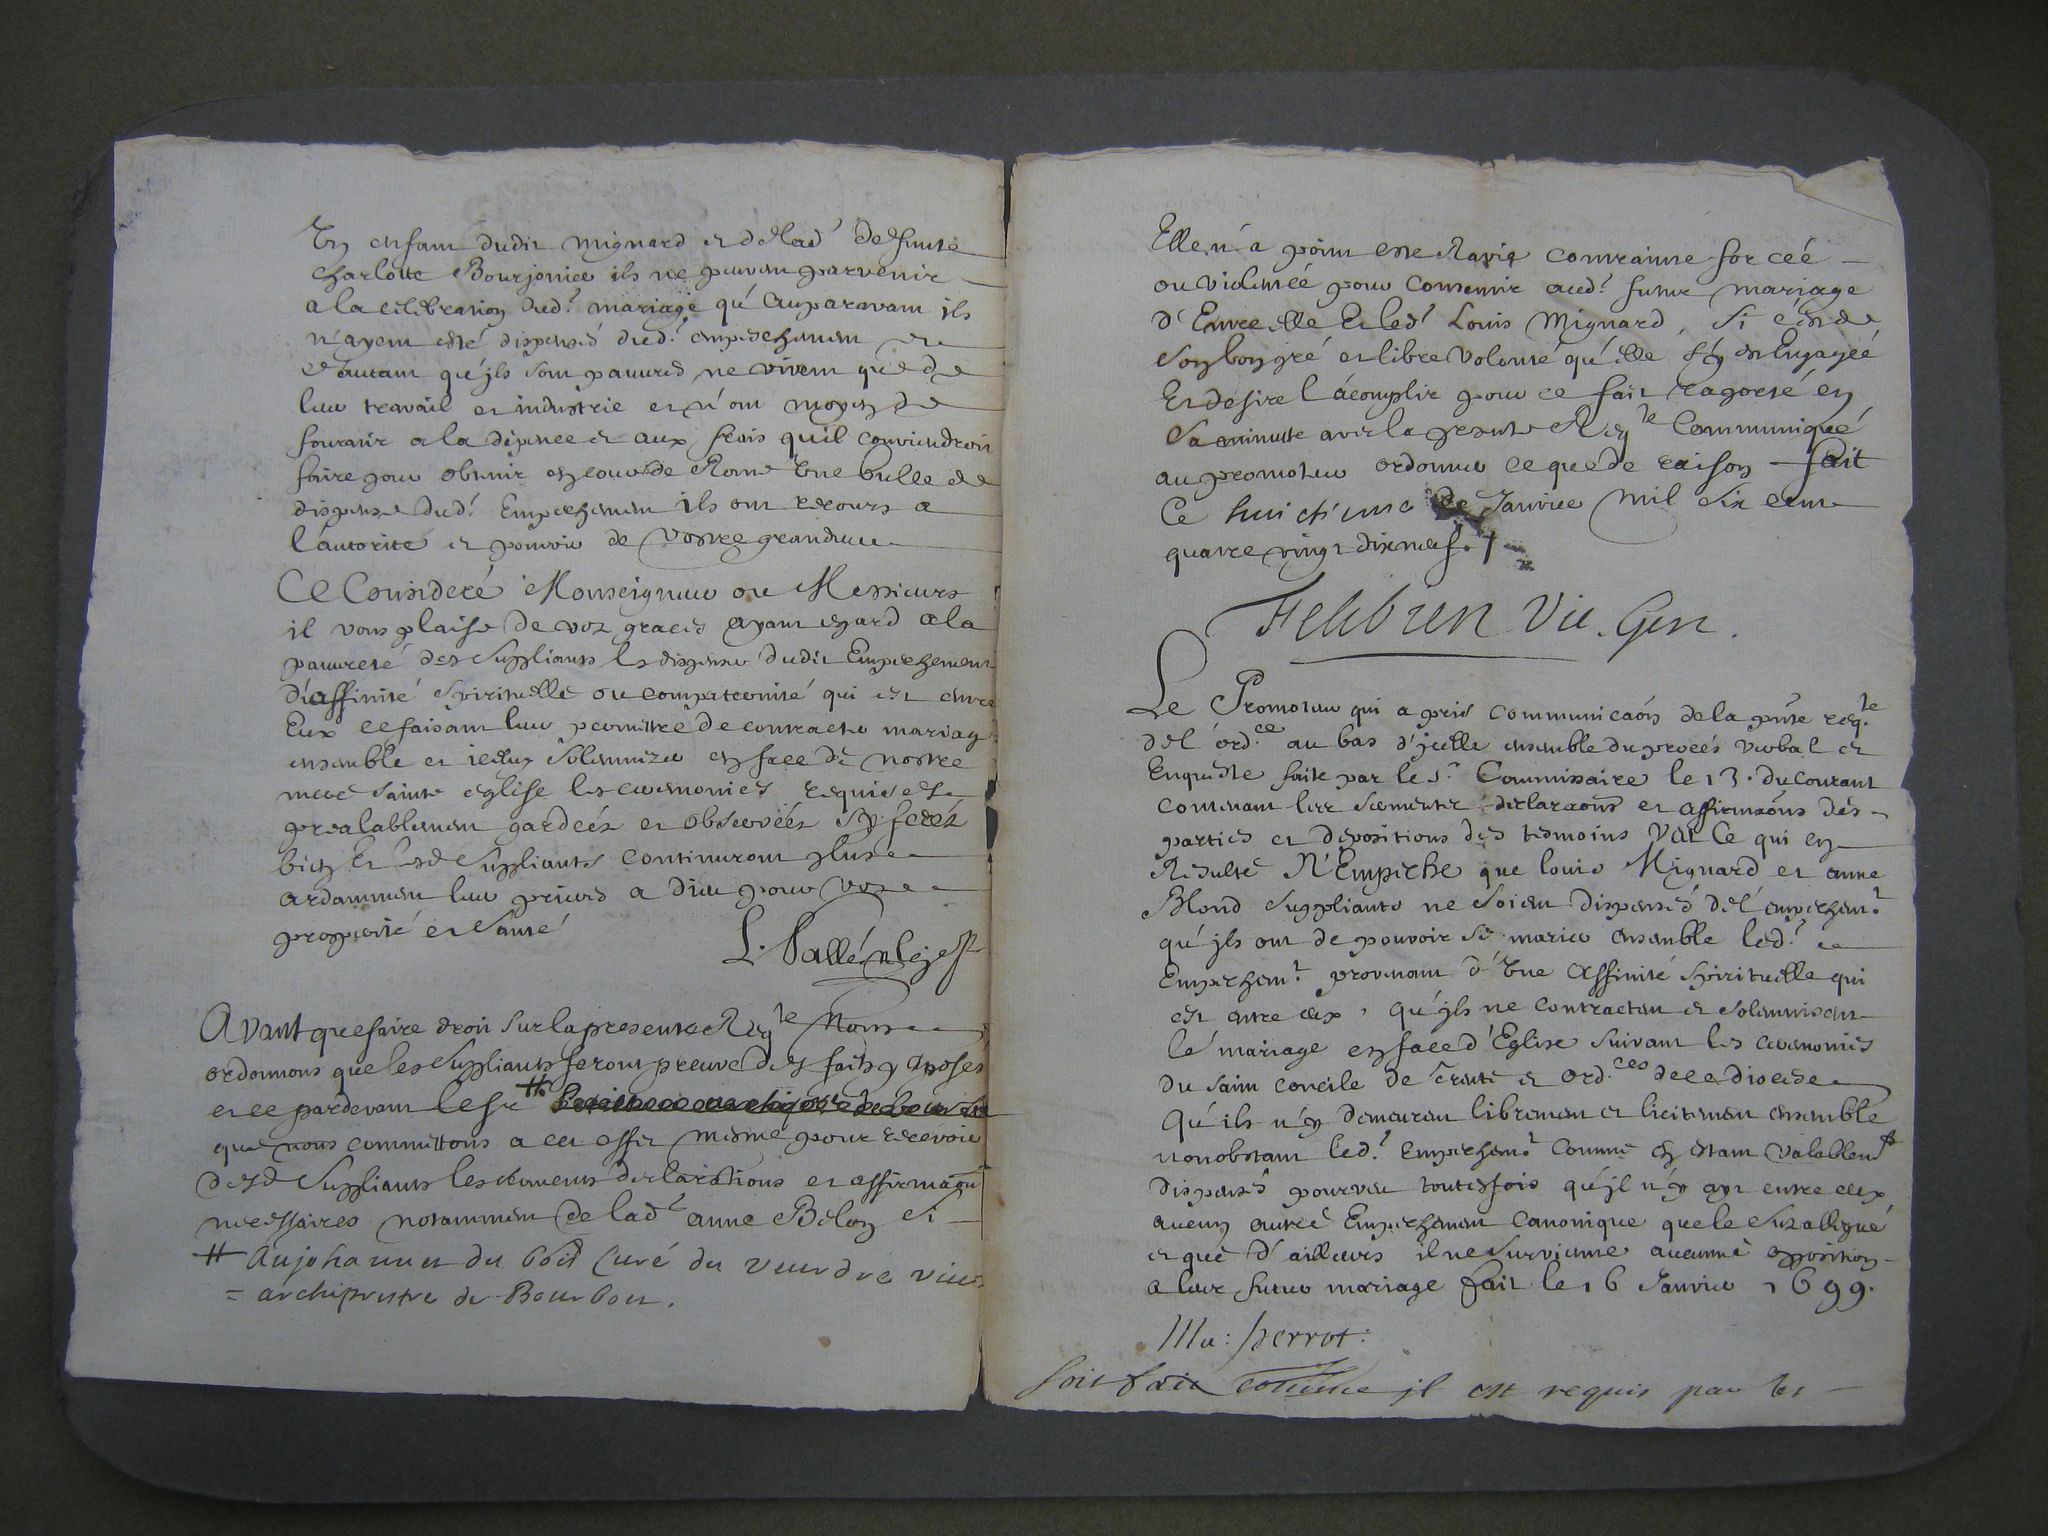 Un enfant dudit mignard et de lad.' deffunte
charlotte Bourjonier ils ne peuvent parvenir
a la celebration dud.' mariage qu'auparavant ils
n'ayent esté dispensés dud.' empeschement et
d'autant qu'jls sont pauvres ne vivent que de
leur travail et industrie et n'ont moyen de
fournir a la dépence et aux frais quil conviendroit
faire pour obtenir en cour de Rome Une bulle de
dispense dud.' Empeschement ils ont recours a
l'autorité et pouvoir de vostre grandeur
Ce Consideré Monseigneur ou Messieurs
il vous plaise de voz graces ayant egard a la
pauvreté des Suppliants les dispenser dudit Empeschement
d'affinité Spirituelle ou compaternité qui est entre
Eux ce faisant leur permettre de contracter mariage
ensemble et icelluy Solemnizer en face de nostre
mere Sainte eglise les ceremonies requises
prealablement gardeéz et observéez Sy ferez
bien Et lesd Suppliants continuront plus
ardamment leur prieres a Dieu pour voz
prosperité et Santé
Avant que faire droit Sur la presente Req.te Nous
ordonnons que les Suppliants feront preuve des faits y exposes
et ce pardevant le Sr #
que nous committons a cet effet mesme pour recevoir
desd Suppliants les serments declarations et affirmaõns
necessaires notamment de lad.e anne Belon Si
# Aujohannet du bois Curé du veurdre vice
= archiprestre de Bourbon.
Elle n'a point este Ravie contrainte forceé
ou violentée pour consentir aud.' futur mariage
d'Entre elle Et led.' Louis Mignard, Si c'est de
Son bon gré et libre volonté qu'elle S'y est Engageé
Et desire l'acomplir pour ce fait raporté en
Sa minutte avec la presente Req.te Communiqueé
au promoteur ordonner ce que de raison fait
Ce huictiesme de Janvier mil six cent
quatre vingt dix neuf. /
Felibien Vic. Gen.
Le Promoteur qui a pris communicaõn de la pñte req.te
del'ord.ce au bas d'jcelle ensemble du procés verbal et
Enqueste faite par le s.r Commissaire le 13. du courant
contenant leur serments declaraõns et affirmaõns des
parties et depositions des tesmoins Veu Ce qui en
Resulte N'Empeche que louis Mignard et anne
Blond Suppliants ne Soient dispensés del'empeschem.t
qu'jls ont de pouvoir se marier ensemble led.'
Empeschem.t provenant d'Une affinité Spirituelle qui
est entre eux, qu'jls ne contractent et solemnisent
le mariage en face d'Eglise Suivant les ceremonies
du Saint concile de Trente et ord.ces de ce diocese
Qu'ils n'y demeurent librement et licitement ensemble
nonobstant led.' Empeschem.t comme en estant valablem.t
dispensés pourveu toutesfois qu'jl n'y ayt entre eux
aucun autre Empeschement canonique que le Suzallegué
et que d'ailleurs il ne Survienne aucunne opposition
a leur futur mariage fait le 16 Janvier 1699.
perrot:
Soit fait comme jl est requis par les